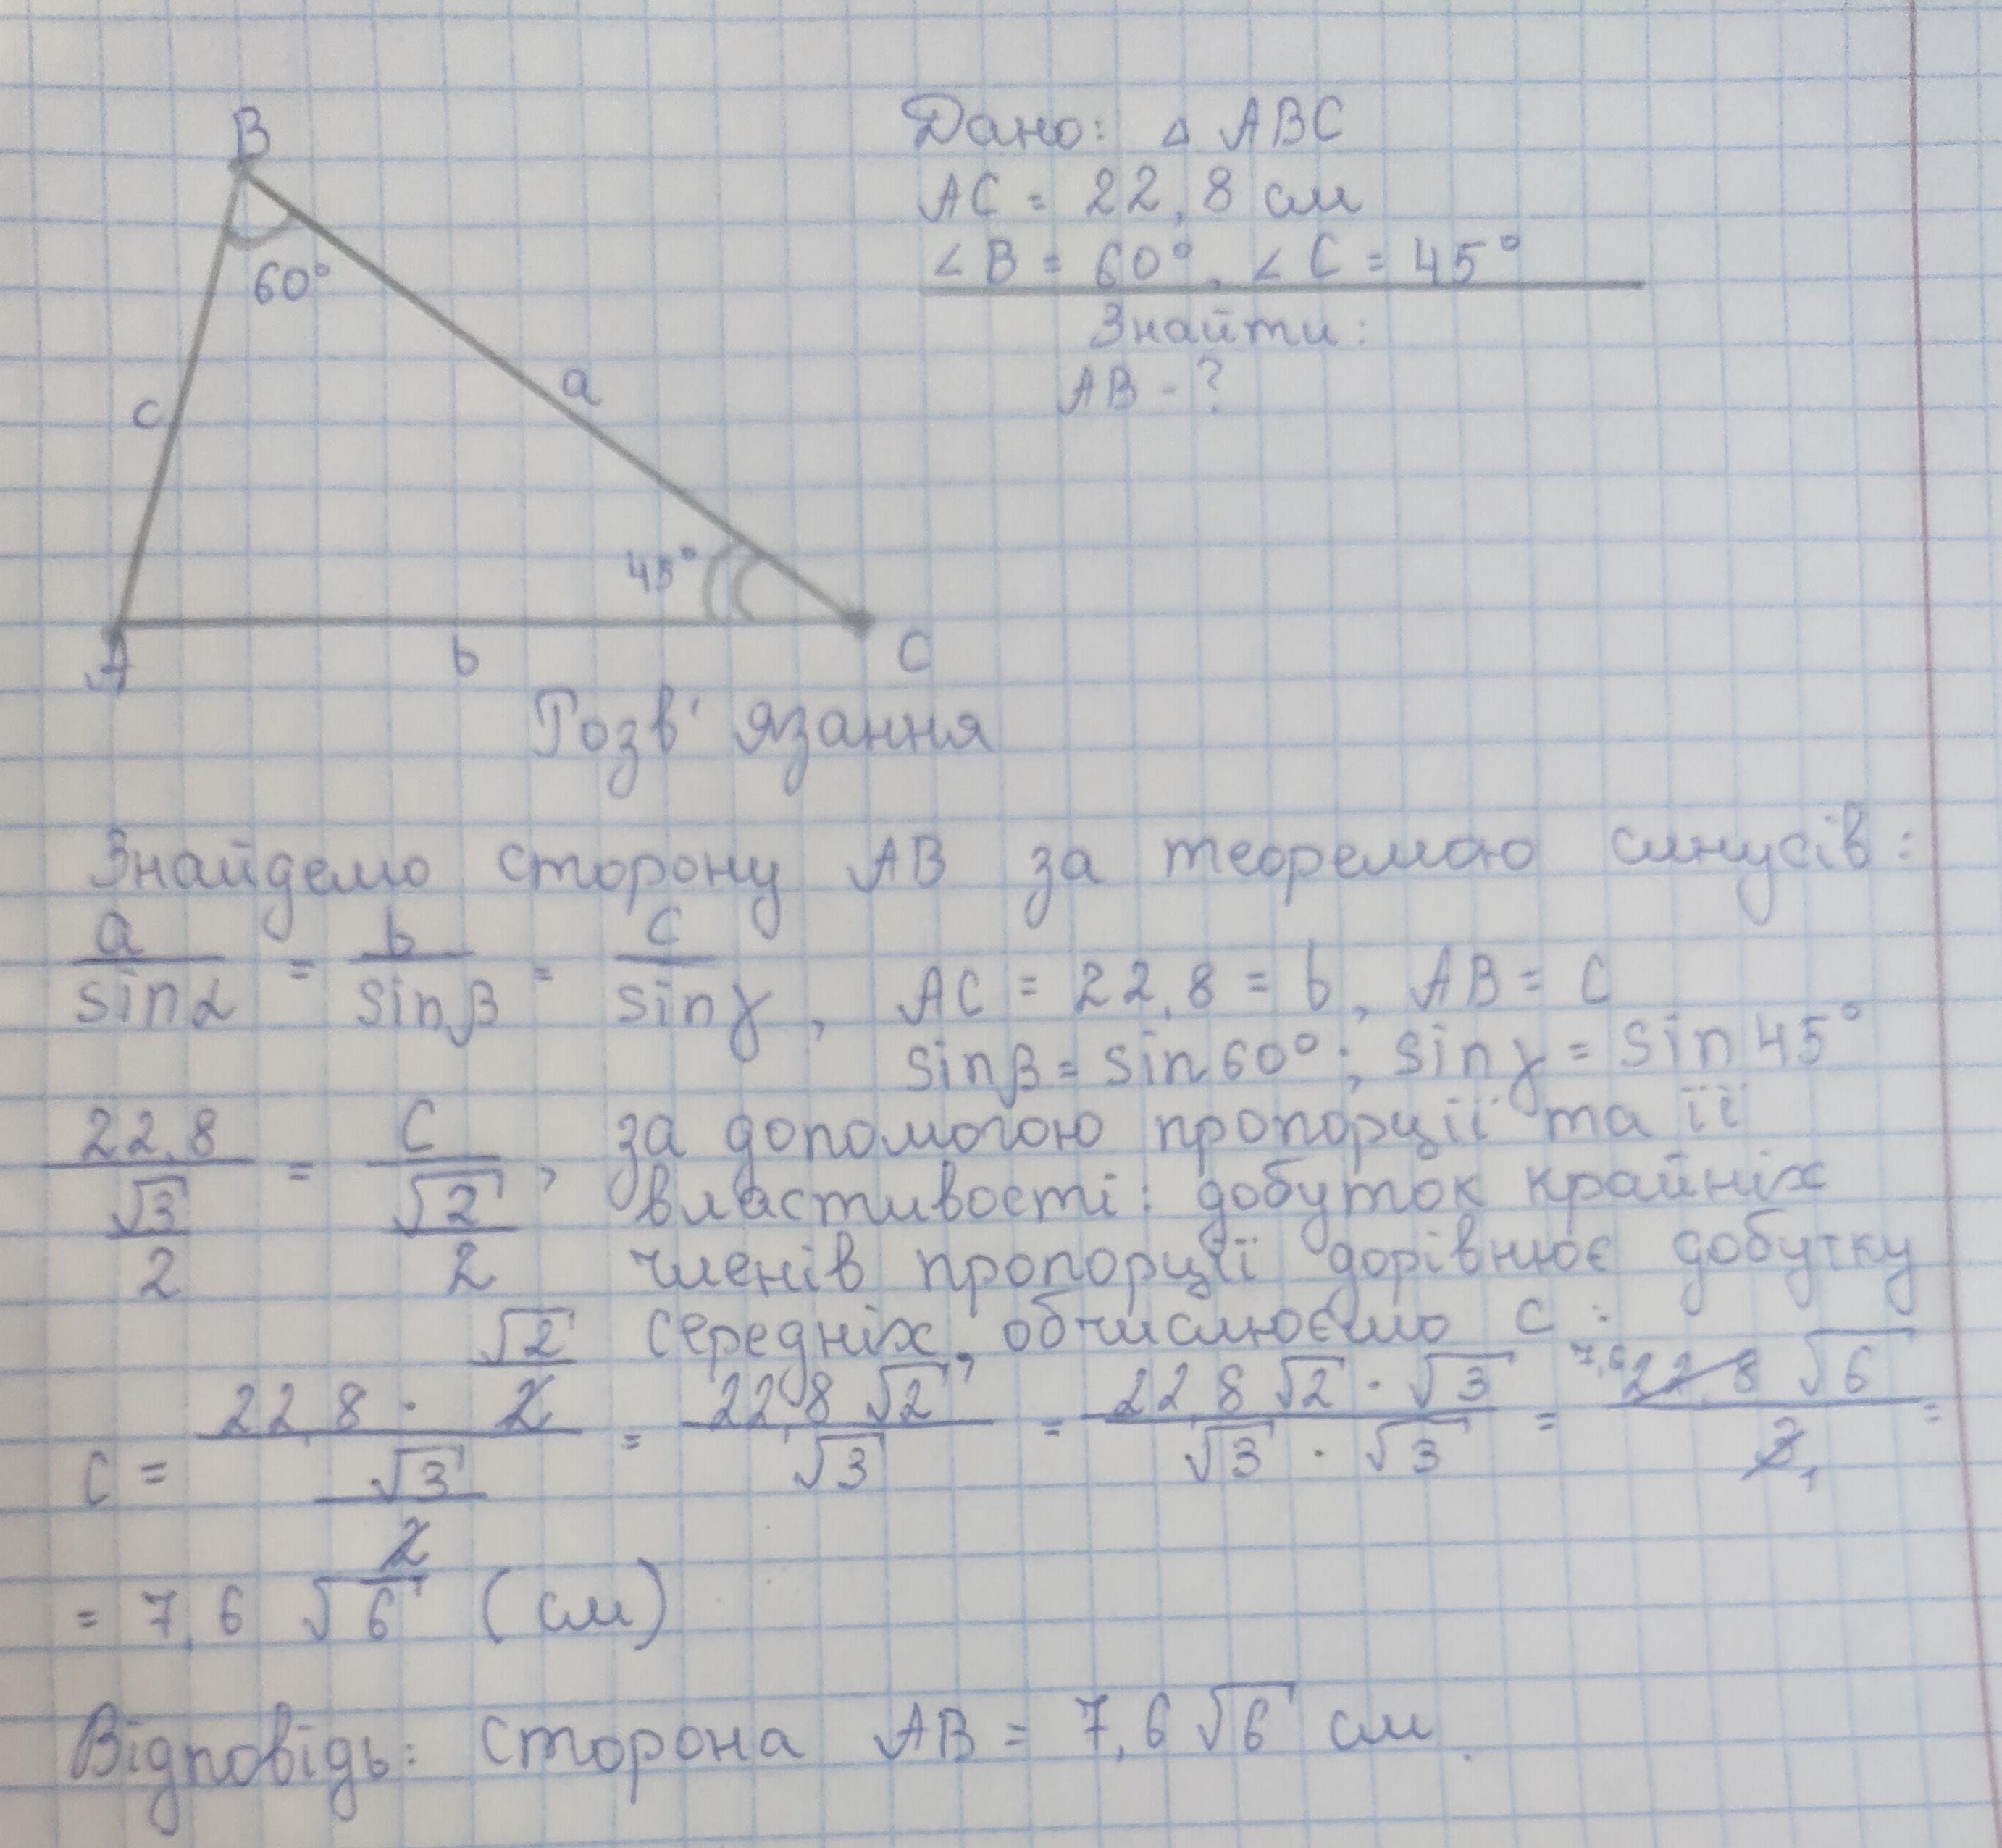 B
60°
c
a
45°
A
b
C
Дано: △ ABC
AC = 22,8 см
∠B = 60°, ∠C = 45°
Знайти:
AB - ?
Розв'язання
Знайдемо сторону AB за теоремою синусів:
a/sinα = b/sinβ = c/sinγ, AC = 22,8 = b, AB = c
sinβ = sin60°; sinγ = sin45°
22,8/(√3/2) = c/(√2/2), за допомогою пропорції та її
властивості: добуток крайніх
членів пропорції дорівнює добутку
середніх, обчислюємо c:
c = (22,8 · √2/2)/(√3/2) = 22,8√2/√3 = 22,8√2 · √3/√3 · √3 = 7,6 22,8√6/3 1 =
= 7,6 √6 (см)
Відповідь: сторона AB = 7,6√6 см.